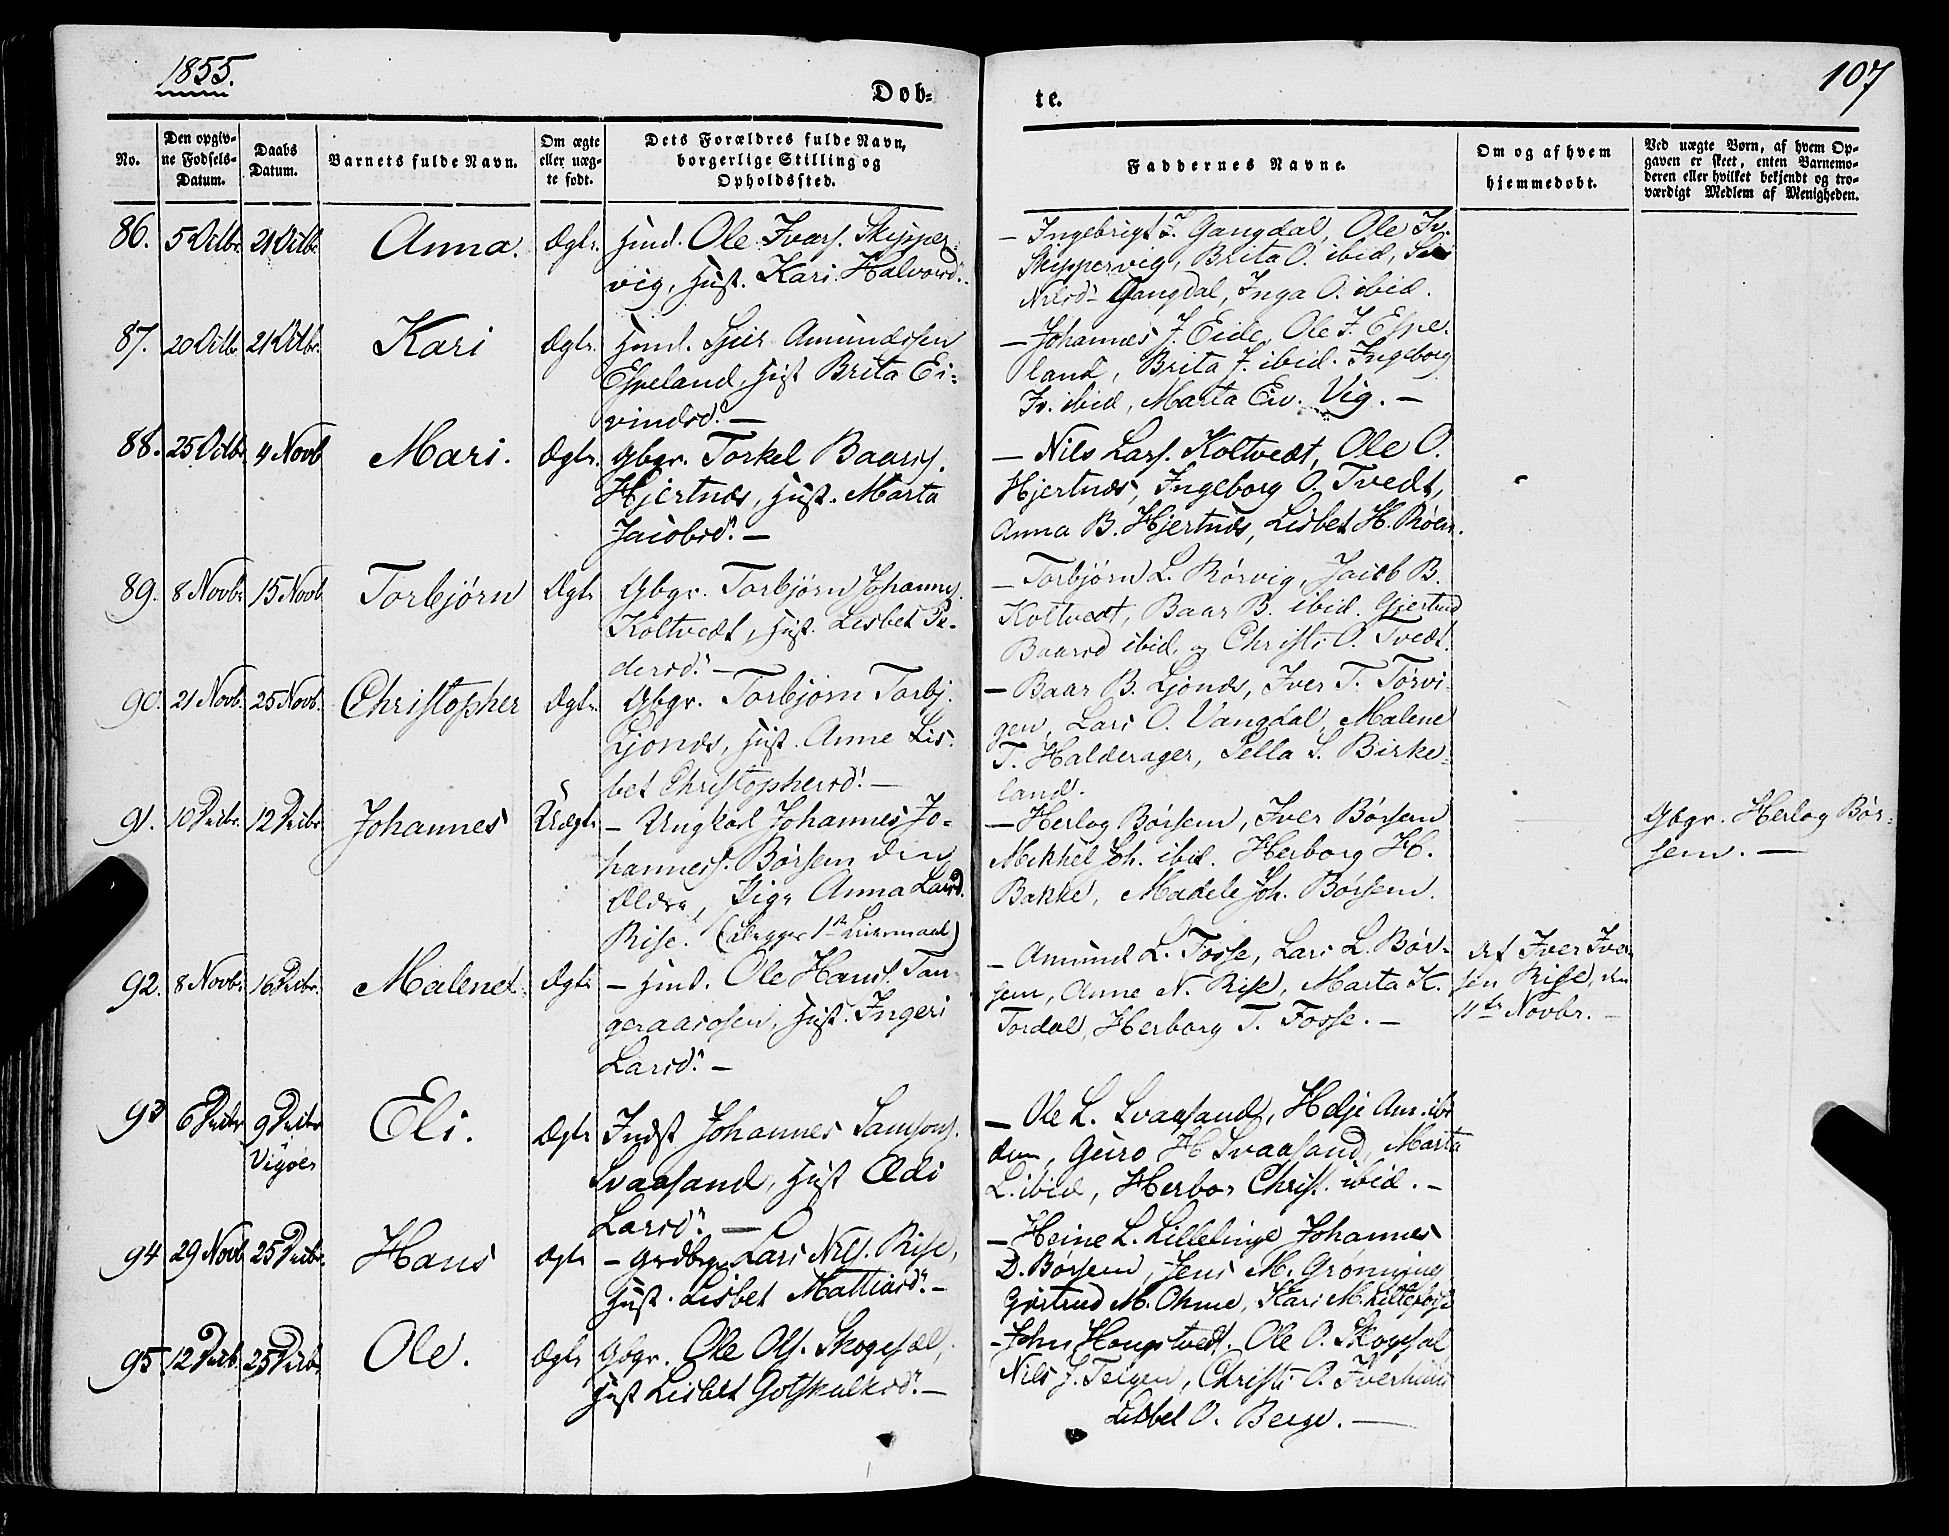 1855.
107
Dob-
te.
No.
Den opgiv-
ne Fodsels-
Datum.
Daabs
Datum.
Barnets fulde Navn.
Om ægte
eller uæg-
te født.
Dets Forældres fulde Navn,
borgerlige Stilling og
Opholdssted.
Faddernes Navne.
Om og af hvem
hjemmedøbt.
Ved uægte Børn, af hvem Op-
gaven er skeet, enten Barnemo-
deren eller hvilket bekjendt og tro-
værdigt Medlem af Menigheden.
86. 5 Octbr 21 Octbr Anna. Ægte. Huusm. Ole Ivars. Skipper-
vig, Hust. Kari Halvorsd.
– Ingebrigt I. Gangdal, Ole Iv.
Skippervig, Brita O. ibid,
Nilsd. Gangdal, Inga O. ibid.
87. 20 Octbr 21 Octbr. Kari Ægte. Huusm. Sjur Amundssen
Espeland, Hust Brita Ei-
vindsd. –
– Johannes J. Eide, Ole J. Espe-
land, Brita J. ibid. Ingeborg
Iv. ibid, Marta Eiv. Vig. –
88. 25 Octbr 4 Novb Mari. Ægte. Gbgr. Torkel Baards.
Hjertnæs, Hust. Marta
Jacobsd. –
– Nils Lars. Koltvedt, Ole O.
Hjertnæs, Ingeborg O. Tvedt,
Anna B. Hjertnæs, Lisbet H.
89. 8 Novbr 15 Novb Torbjørn Ægte Gbgr. Torbjørn Johannes.
Koltvedt, Hust. Lisbet Pe-
dersd. –
– Torbjørn L. Rørvig, Jacob B.
Koltvedt, Baar B. ibid. Gjertrud
Baarsd ibid, og Christi O. Tvedt.
90. 21 Novb. 25 Novb. Christopher Ægte. Gbgr. Torbjørn Torbj.
Ljonæs, Hust. Anne Lis-
bet Christophersd. –
– Baar B. Ljonæs, Iver T. Torvi-
gen, Lars O. Vangdal, Malene
T. Halderager, Sella S. Birke-
land.
91. 10 Decbr. 12 Decbr Johannes Uægte – Ungkarl Johannes Jo-
hanness. Børsem den
ældre, Pige Anna Larsd.
Rise. (Begges 1ste Leiermaal)
– Herlog Børsem, Iver Børsem
Mikkel Joh. ibid. Herborg H.
Bakke, Madele Joh. Børsem.
Gbgr. Herlog Bør-
sem. –
92. 8 Novbr. 16 Decbr. Malene. Ægte – Huusm. Ole Hans. Tan-
geraasosen, Hust. Ingeri
Larsd. –
– Amund L. Fosse, Lars L. Bør-
sem, Anne N. Rise, Marta K.
Tordal, Herborg T. Fosse. –
Af Iver Iver-
sen Rise, den
11te Novbr. –
93 6 Decbr 9 Decbr
Vigøer
Eli. Ægte Indst Johannes Samsons.
Svaasand, Hust Ædi
Larsd. –
– Ole L. Svaasand, Helje Am. ibi
dem, Guro H. Svaasand, Marta
L. ibid, Herbor Christ. ibid. –
94 29 Novb 25 Decbr. Hans Ægte – Grdbgr Lars Nils. Rise,
Hust. Lisbet Mathiasd. –
– Heine L. Lilletinge Johannes
D. Børsem, Jens M. Grønning
Gjertrud M. Ohme, Kari M.
95. 12 Decb. 25 Decbr Ole. Ægte Gbgr. Ole Ols. Skogesæl,
Hust Lisbet Gotskalksd. –
– John Hougstvedt. Ole O. Skogesæl
Nils J. Teigen, Christi O. Iverhuus
Lisbet O. Berge. –